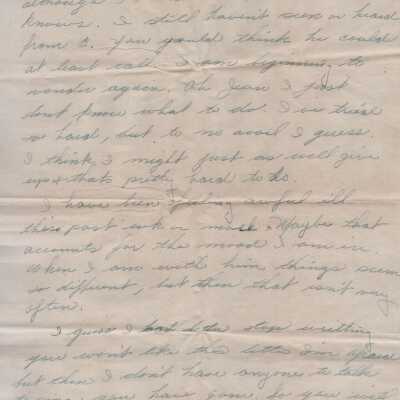 although I
knows. I still haven't seen or heard
from G. You would think he could
at least call. I am beginning to
wonder again. Oh Jean I just
don't know what to do. I've tried
so hard, but to no avail I guess.
I think I might just as well give
up & thats pretty hard to do.
I have been feeling awful ill
this past wk or more. Maybe that
accounts for the mood I am in.
When I am with him things seem
so different, but then that isn't very
often.
I guess I had better stop writing
you won't like this letter I'm afraid
but then I don't have anyone to talk
you have gone. So you will